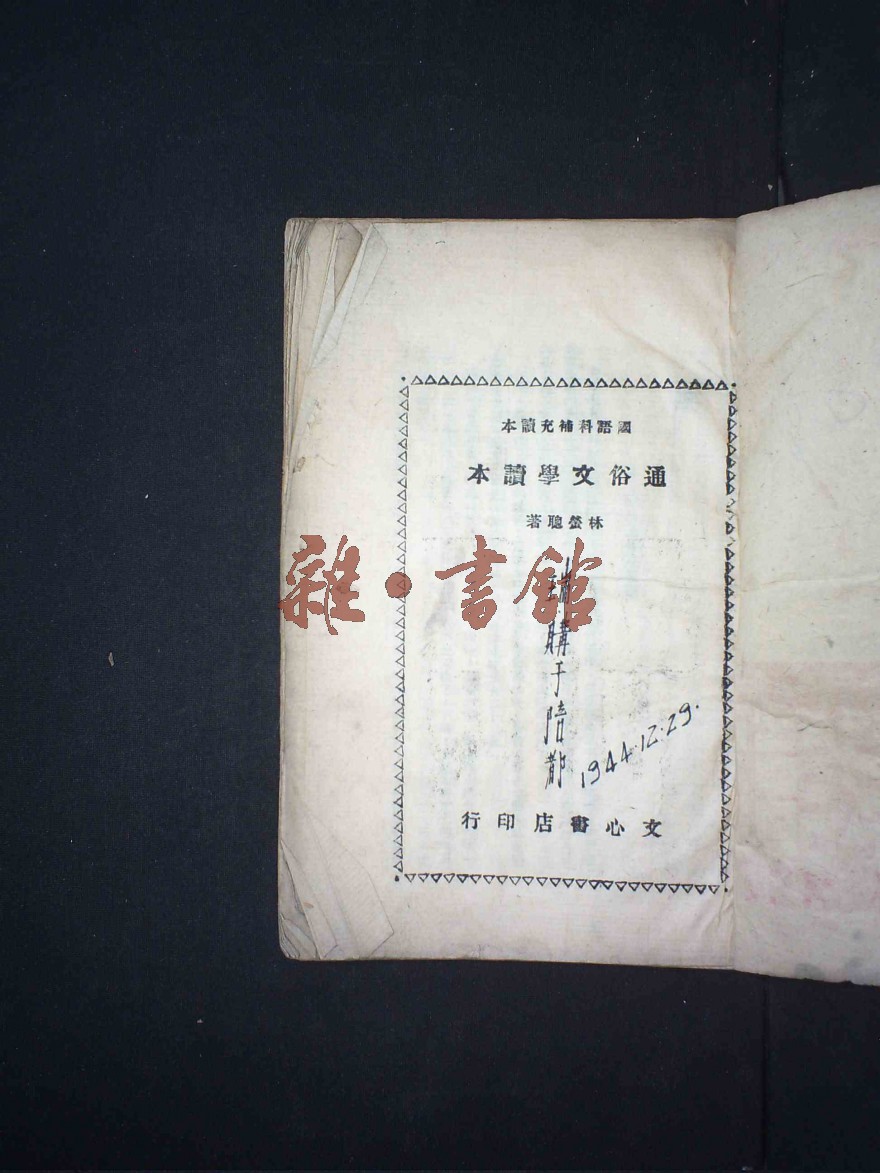 國語科補充讀本
通俗文學讀本
林螢聰著
購于陪都
1944.12.29.
文心書店印行
雜·書館